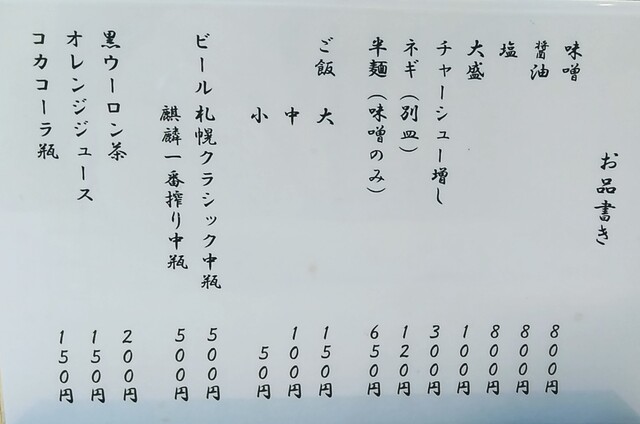 お品書き
味噌 800円
醤油 800円
塩 800円
大盛 100円
チャーシュー増し 300円
ネギ（別皿） 120円
半麺（味噌のみ） 650円
ご飯 大 150円
中 100円
小 50円
ビール 札幌クラシック中瓶 500円
麒麟一番搾り中瓶 500円
黒ウーロン茶 200円
オレンジジュース 150円
コカコーラ瓶 150円